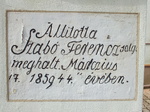 Állitotta
Szabó Ferencz
meghalt. Márczius
17. 1859 44." évében.